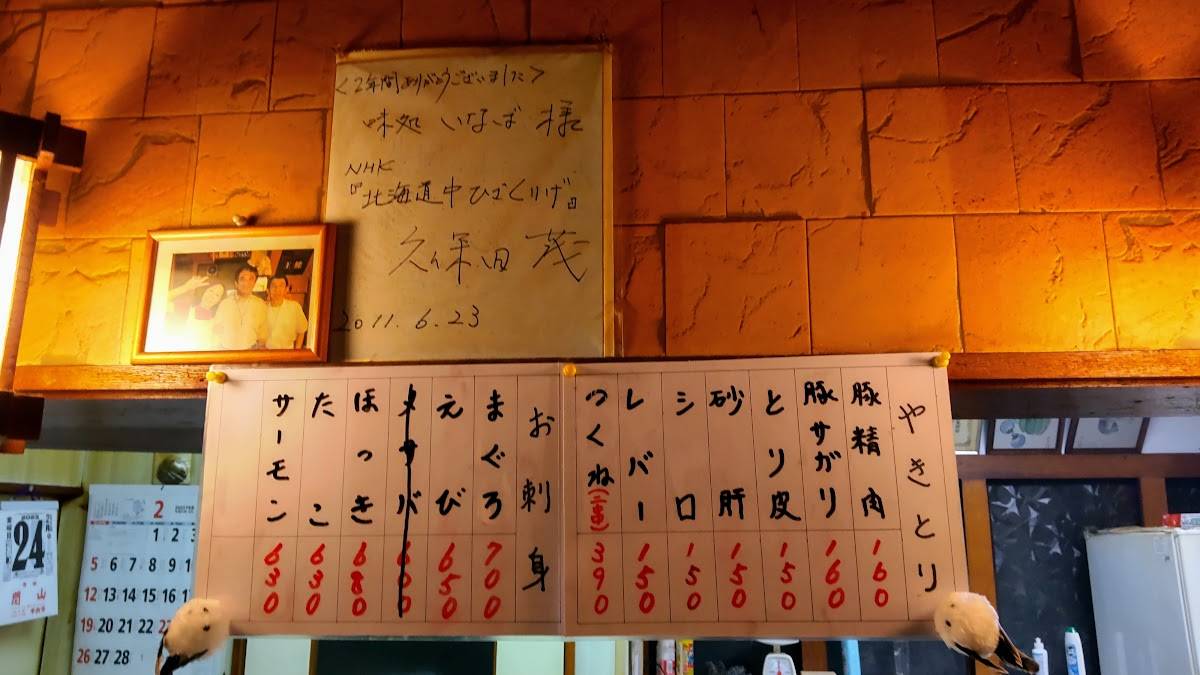 ＜2年間ありがとうございました＞
味処 いなば 様
NHK
『北海道中ひざくりげ』
久保田 茂
2011.6.23
やきとり
豚精肉 160
豚サガリ 160
とり皮 150
砂肝 150
シロ 150
レバー 150
つくね(二本) 390
お刺身
まぐろ 700
えび 650
〆サバ 600
ほっき 680
たこ 630
サーモン 630
24
2
1 2 3
5 6 7 8 9 1
12 13 14 15 16
19 20 21 22 2
26 27 28